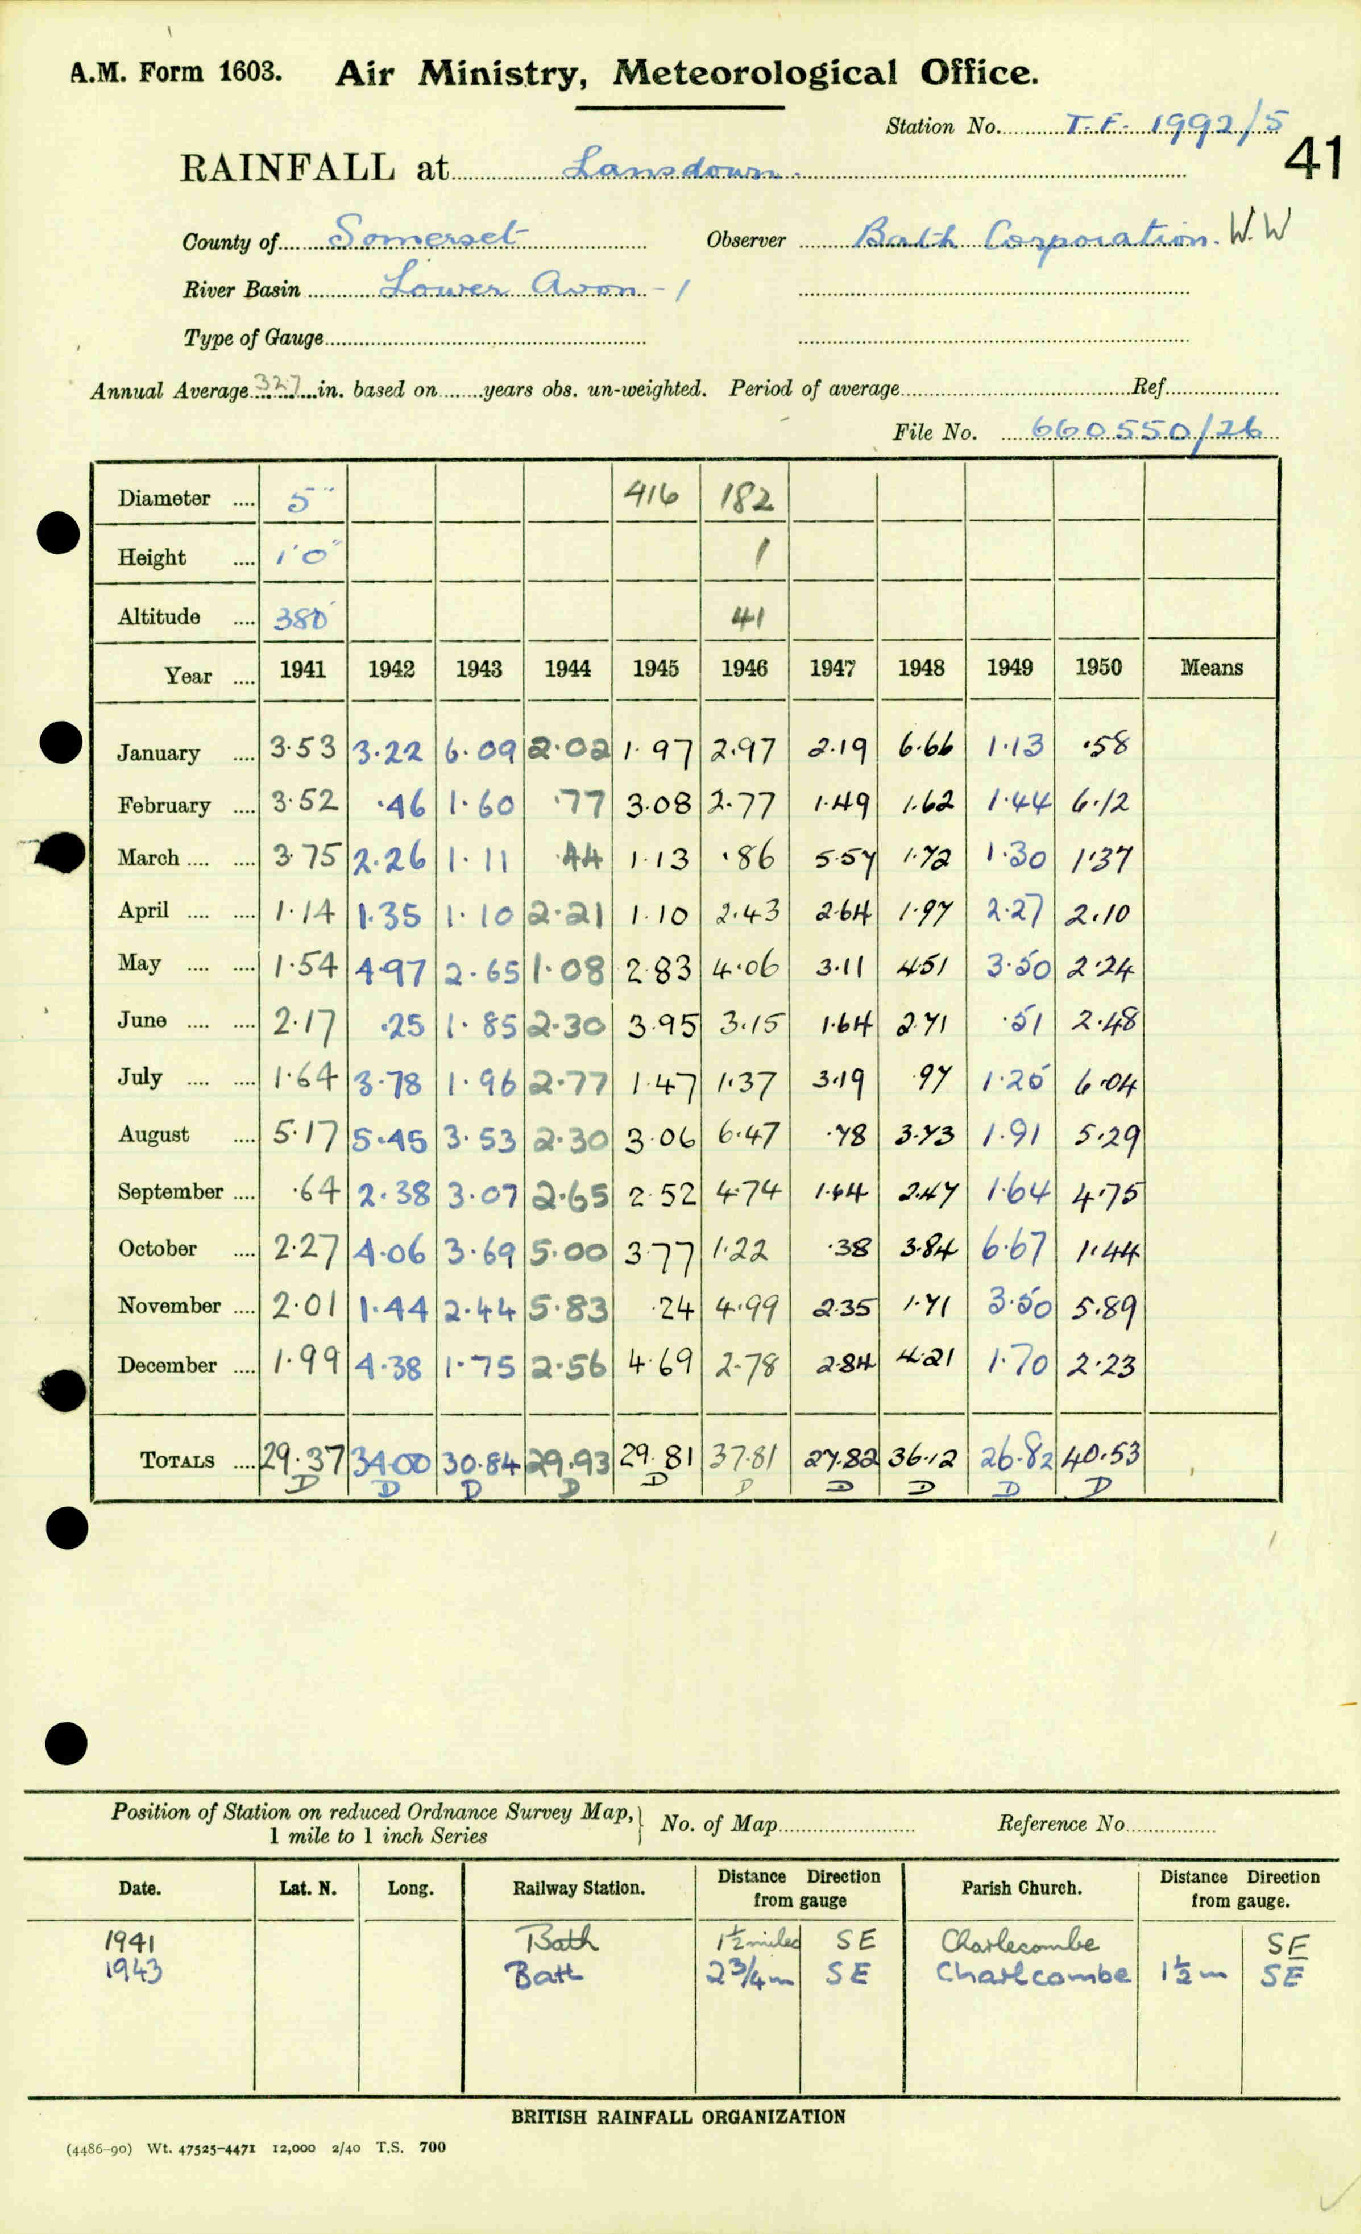 A.M. Form 1603. Air Ministry, Meteorological Office.
Station No. T.F. 1992/5
41
RAINFALL at Lansdown.
County of Somerset Observer Bath Corporation. W.W
River Basin Lower Avon - 1
Type of Gauge
Annual Average 327 in. based on years obs. un-weighted. Period of average Ref
File No. 660550/26
Diameter .... 5" 416 182
Height .... 1'0" 1
Altitude .... 380' 41
Year .... 1941 1942 1943 1944 1945 1946 1947 1948 1949 1950 Means
January .... 3.53 3.22 6.09 2.02 1.97 2.97 2.19 6.66 1.13 .58
February .... 3.52 .46 1.60 .77 3.08 2.77 1.49 1.62 1.44 6.12
March .... .... 3.75 2.26 1.11 .44 1.13 .86 5.57 1.72 1.30 1.37
April .... .... 1.14 1.35 1.10 2.21 1.10 2.43 2.64 1.97 2.27 2.10
May .... .... 1.54 4.97 2.65 1.08 2.83 4.06 3.11 4.51 3.50 2.24
June .... .... 2.17 .25 1.85 2.30 3.95 3.15 1.64 2.71 .51 2.48
July .... .... 1.64 3.78 1.96 2.77 1.47 1.37 3.19 .97 1.25 6.04
August .... 5.17 5.45 3.53 2.30 3.06 6.47 .78 3.73 1.91 5.29
September .... .64 2.38 3.07 2.65 2.52 4.74 1.64 2.47 1.64 4.75
October .... 2.27 4.06 3.69 5.00 3.77 1.22 .38 3.84 6.67 1.44
November .... 2.01 1.44 2.44 5.83 .24 4.99 2.35 1.71 3.50 5.89
December .... 1.99 4.38 1.75 2.56 4.69 2.78 2.84 4.21 1.70 2.23
TOTALS .... 29.37 34.00 30.84 29.93 29.81 37.81 27.82 36.12 26.82 40.53
D D D D D D D D D D
Position of Station on reduced Ordnance Survey Map, } No. of Map Reference No
1 mile to 1 inch Series
Date. Lat. N. Long. Railway Station. Distance Direction from gauge Parish Church. Distance Direction from gauge.
1941 Bath 1½ miles SE Charlecombe SE
1943 Bath 2¾ m SE Charlcombe 1½ m SE
BRITISH RAINFALL ORGANIZATION
(4486-90) Wt. 47525-4471 12,000 2/40 T.S. 700